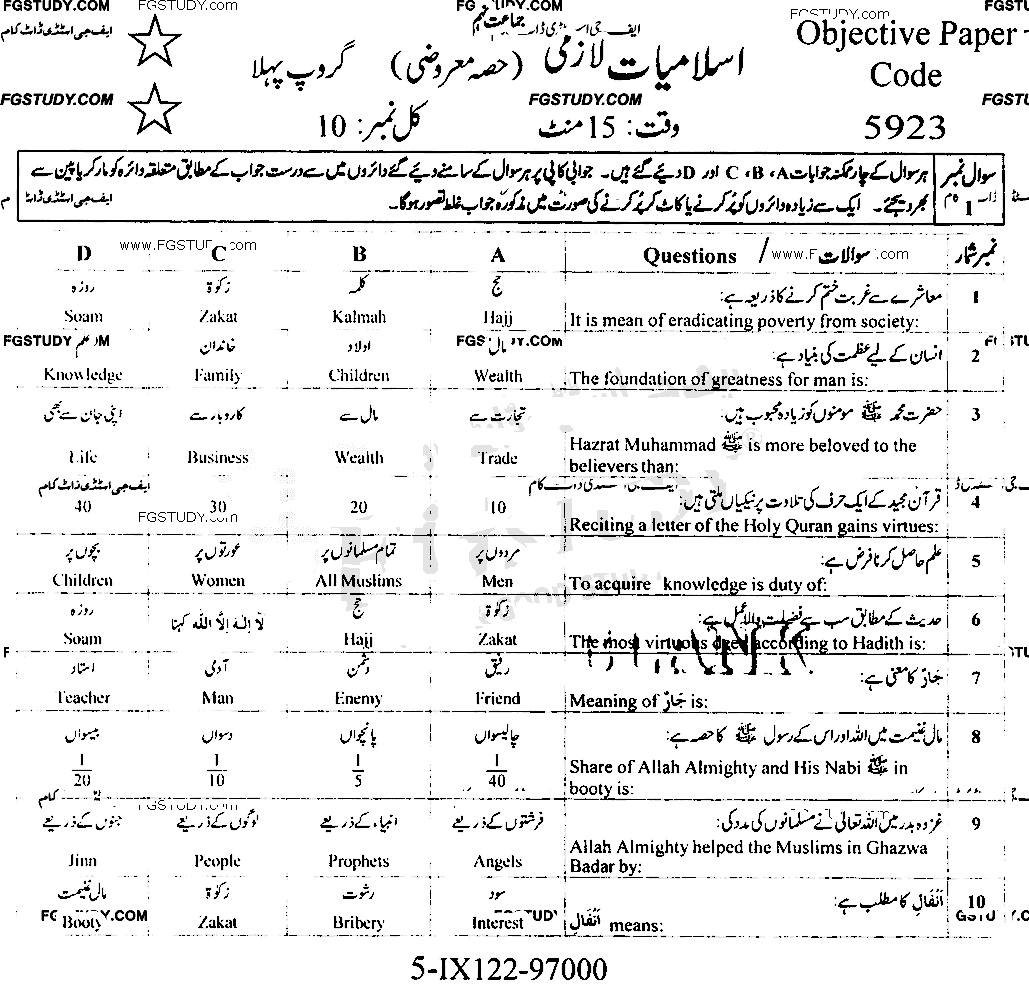 FGSTUDY.COM
FGSTUDY.com
ایف جی اسٹڈی ڈاٹ کام
جماعت نہم
Objective Paper
اسلامیات لازمی (حصہ معروضی) گروپ پہلا
Code
FGSTUDY.COM FGSTUDY.COM
5923
وقت: 15 منٹ کل نمبر: 10
سوال نمبر 1
ہر سوال کے چار ممکنہ جوابات A، B، C اور D دیئے گئے ہیں۔ جوابی کاپی پر ہر سوال کے سامنے دیئے گئے دائروں میں سے درست جواب کے مطابق متعلقہ دائرہ کو مارکر یا پین سے
بھر دیجئے۔ ایک سے زیادہ دائروں کو پُر کرنے یا کاٹ کر پُر کرنے کی صورت میں مذکورہ جواب غلط تصور ہوگا۔
ایف جی اسٹڈی ڈاٹ
D C B A Questions / سوالات نمبر شمار
روزہ زکوٰۃ کلمہ حج معاشرے سے غربت ختم کرنے کا ذریعہ ہے: 1
Soam Zakat Kalmah Hajj It is mean of eradicating poverty from society:
علم خاندان اولاد مال انسان کے لیے عظمت کی بنیاد ہے: 2
Knowledge Family Children Wealth The foundation of greatness for man is:
اپنی جان سے بھی کاروبار سے مال سے تجارت سے حضرت محمد ﷺ مومنوں کو زیادہ محبوب ہیں: 3
Life Business Wealth Trade Hazrat Muhammad ﷺ is more beloved to the
believers than:
ایف جی اسٹڈی ڈاٹ کام
قرآن مجید کے ایک حرف کی تلاوت پر نیکیاں ملتی ہیں: 4
40 30 20 10 Reciting a letter of the Holy Quran gains virtues:
بچوں پر عورتوں پر تمام مسلمانوں پر مردوں پر علم حاصل کرنا فرض ہے: 5
Children Women All Muslims Men To acquire knowledge is duty of:
روزہ لَا اِلٰهَ اِلَّا اللّٰه کہنا حج زکوٰۃ حدیث کے مطابق سب سے فضیلت والا عمل ہے: 6
Soam Hajj Zakat The most virtuous deed according to Hadith is:
استاد آدمی دشمن رفیق جَارٌ کا معنی ہے: 7
Teacher Man Enemy Friend Meaning of جَارٌ is:
بیسواں دسواں پانچواں چالیسواں مال غنیمت میں اللہ اور اس کے رسول ﷺ کا حصہ ہے: 8
1/20 1/10 1/5 1/40 Share of Allah Almighty and His Nabi ﷺ in
booty is:
جنوں کے ذریعے لوگوں کے ذریعے انبیاء کے ذریعے فرشتوں کے ذریعے غزوہ بدر میں اللہ تعالیٰ نے مسلمانوں کی مدد کی: 9
Jinn People Prophets Angels Allah Almighty helped the Muslims in Ghazwa
Badar by:
مال غنیمت زکوٰۃ رشوت سود اَنْفَال کا مطلب ہے: 10
Booty Zakat Bribery Interest اَنْفَال means:
5-IX122-97000